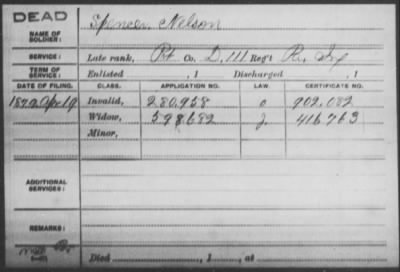 DEAD
Spencer, Nelson
NAME OF SOLDIER:
SERVICE: Late rank, Pt Co. D, 111 Reg't Pa. Inf
TERM OF SERVICE: Enlisted , 1 Discharged , 1
DATE OF FILING. CLASS. APPLICATION NO. LAW. CERTIFICATE NO.
Invalid, 280.958 902.082
Widow, 598682 416763
Minor,
ADDITIONAL SERVICES:
REMARKS:
Died , 1 , at